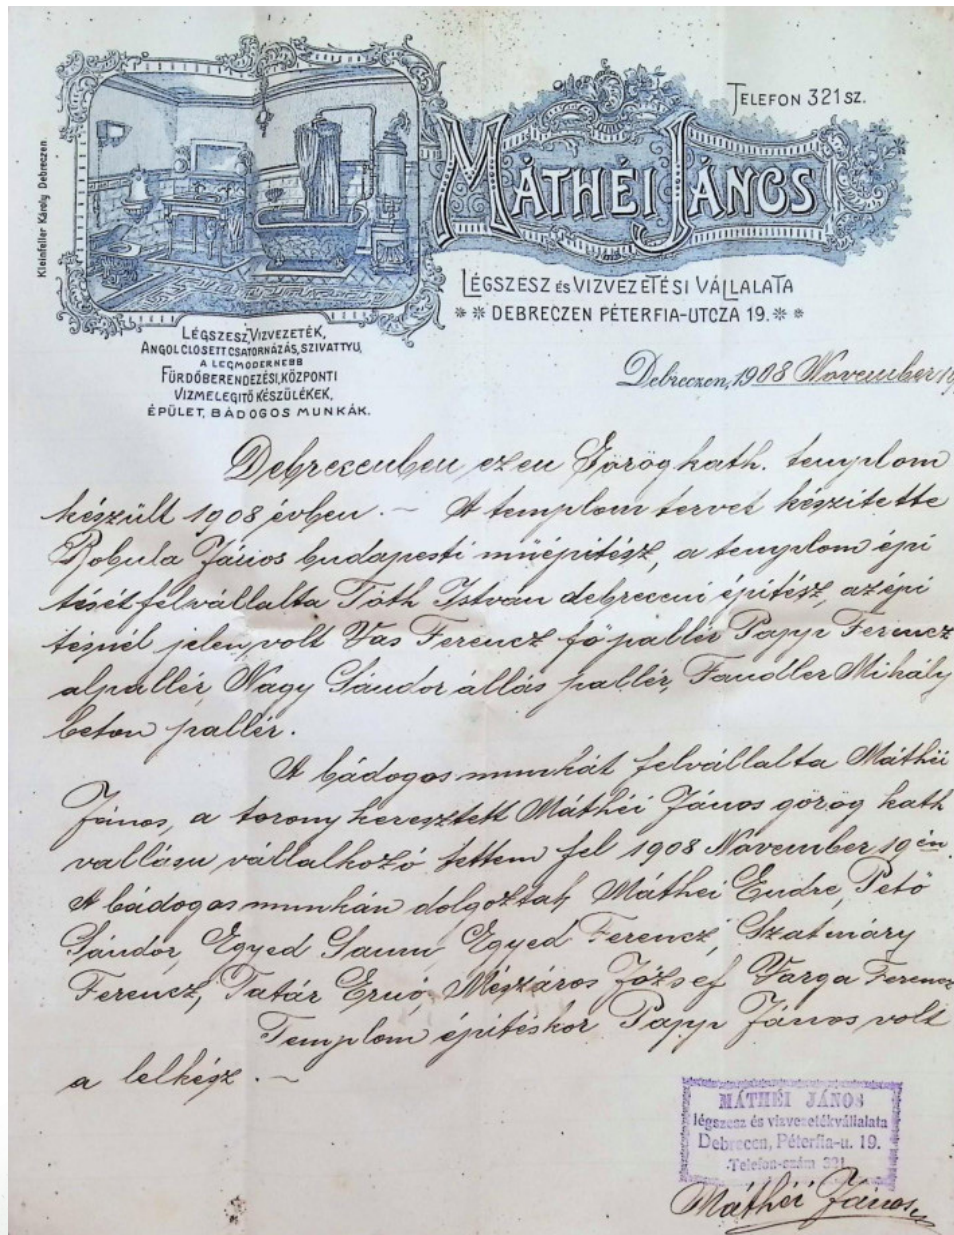 Kleinfeller Károly Debreczen.
TELEFON 321 SZ.
MÁTHÉI JÁNOS
LÉGSZESZ ÉS VIZVEZETÉSI VÁLLALATA
** DEBRECZEN PÉTERFIA-UTCZA 19. **
LÉGSZESZ, VIZVEZETÉK,
ANGOL CLOSETT CSATORNÁZÁS, SZIVATTYU,
A LEGMODERNEBB
FÜRDŐBERENDEZÉSI, KÖZPONTI
VIZMELEGITŐ KÉSZÜLÉKEK,
ÉPÜLET, BÁDOGOS MUNKÁK.
Debreczen, 1908 November
Debreczenben ezen Görög kath. templom
készült 1908 évben. ~ A templom tervet készitette
Bobula János budapesti müépitész, a templom épi
tését felvállalta Tóth Istvan debreceni épitész, az épi
tésnél jelen volt Vas Ferencz fő pallér Papp Ferencz
alpallér, Nagy Sándor állás pallér, Fandler Mihály
beton pallér.
A bádogos munkát felvállalta Máthéi
János, a torony keresztett Máthéi János görög kath
vallásu vállalkozó tettem fel 1908 November 19 én.
A bádogos munkán dolgoztak Máthéi Endre, Pető
Sándor, Egyed Samu, Egyed Ferencz, Szatmáry
Ferencz, Tatár Ernő, Mészáros József Varga Ferencz
Templom épitéskor Papp János volt
a lelkész. ~
MÁTHÉI JÁNOS
légszesz és vizvezetékvállalata
Debrecen, Péterfia-u. 19.
Telefon-szám 321
Máthéi János